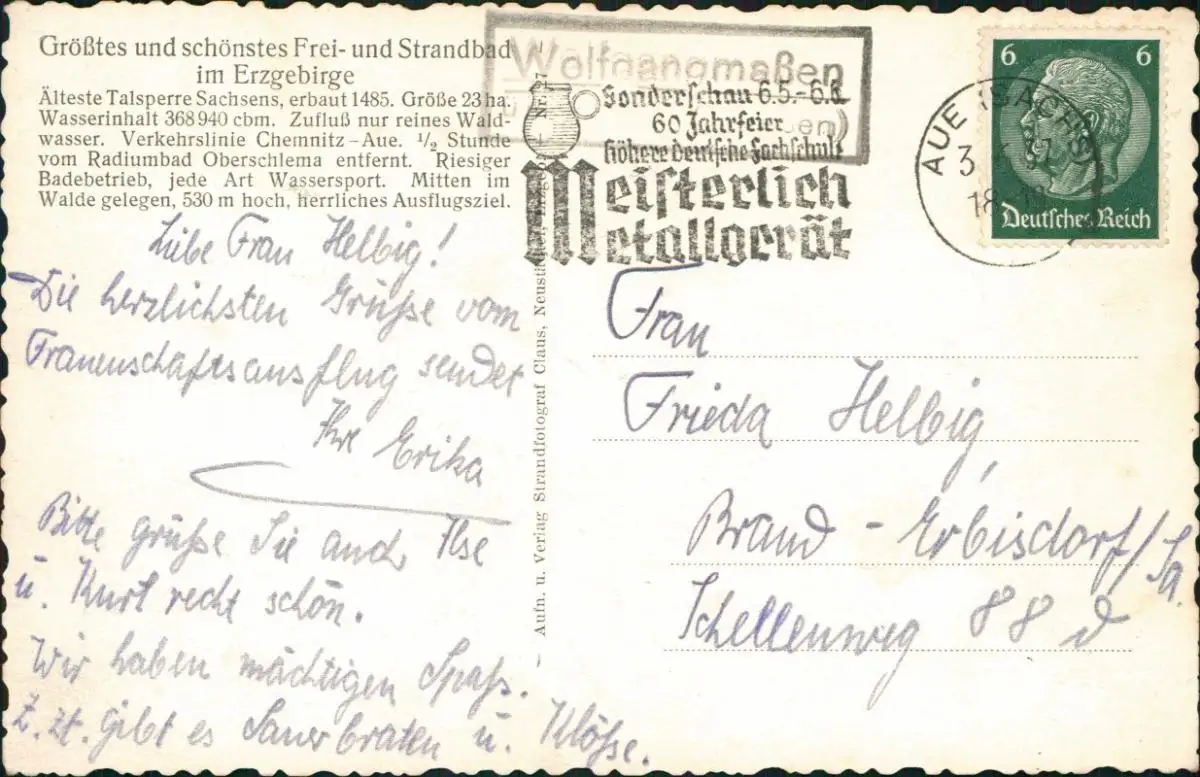 Größtes und schönstes Frei- und Strandbad
im Erzgebirge
Älteste Talsperre Sachsens, erbaut 1485. Größe 23 ha.
Wasserinhalt 368 940 cbm. Zufluß nur reines Wald-
wasser. Verkehrslinie Chemnitz-Aue. 1/2 Stunde
vom Radiumbad Oberschlema entfernt. Riesiger
Badebetrieb, jede Art Wassersport. Mitten im
Walde gelegen, 530 m hoch, herrliches Ausflugsziel.
Liebe Frau Helbig!
Die herzlichsten Grüße vom
Frauenschaftsausflug sendet
Ihre Erika
Bitte grüße Sie auch Ilse
u. Kurt recht schön.
Wir haben mächtigen Spaß.
Z. zt. gibt es Sauerbraten u. Klöße.
Aufn. u. Verlag Strandfotograf Claus, Neustädtel
Wolfgangmaßen
Sonderschau 6.5.-6.6.
60 Jahrfeier
Höhere Deutsche Fachschule
Meisterlich
Metallgerät
AUE (SACHS)
3
18
6 6
Deutsches Reich
Frau
Frieda Helbig,
Brand-Erbisdorf/Sa.
Schellenweg 88 d